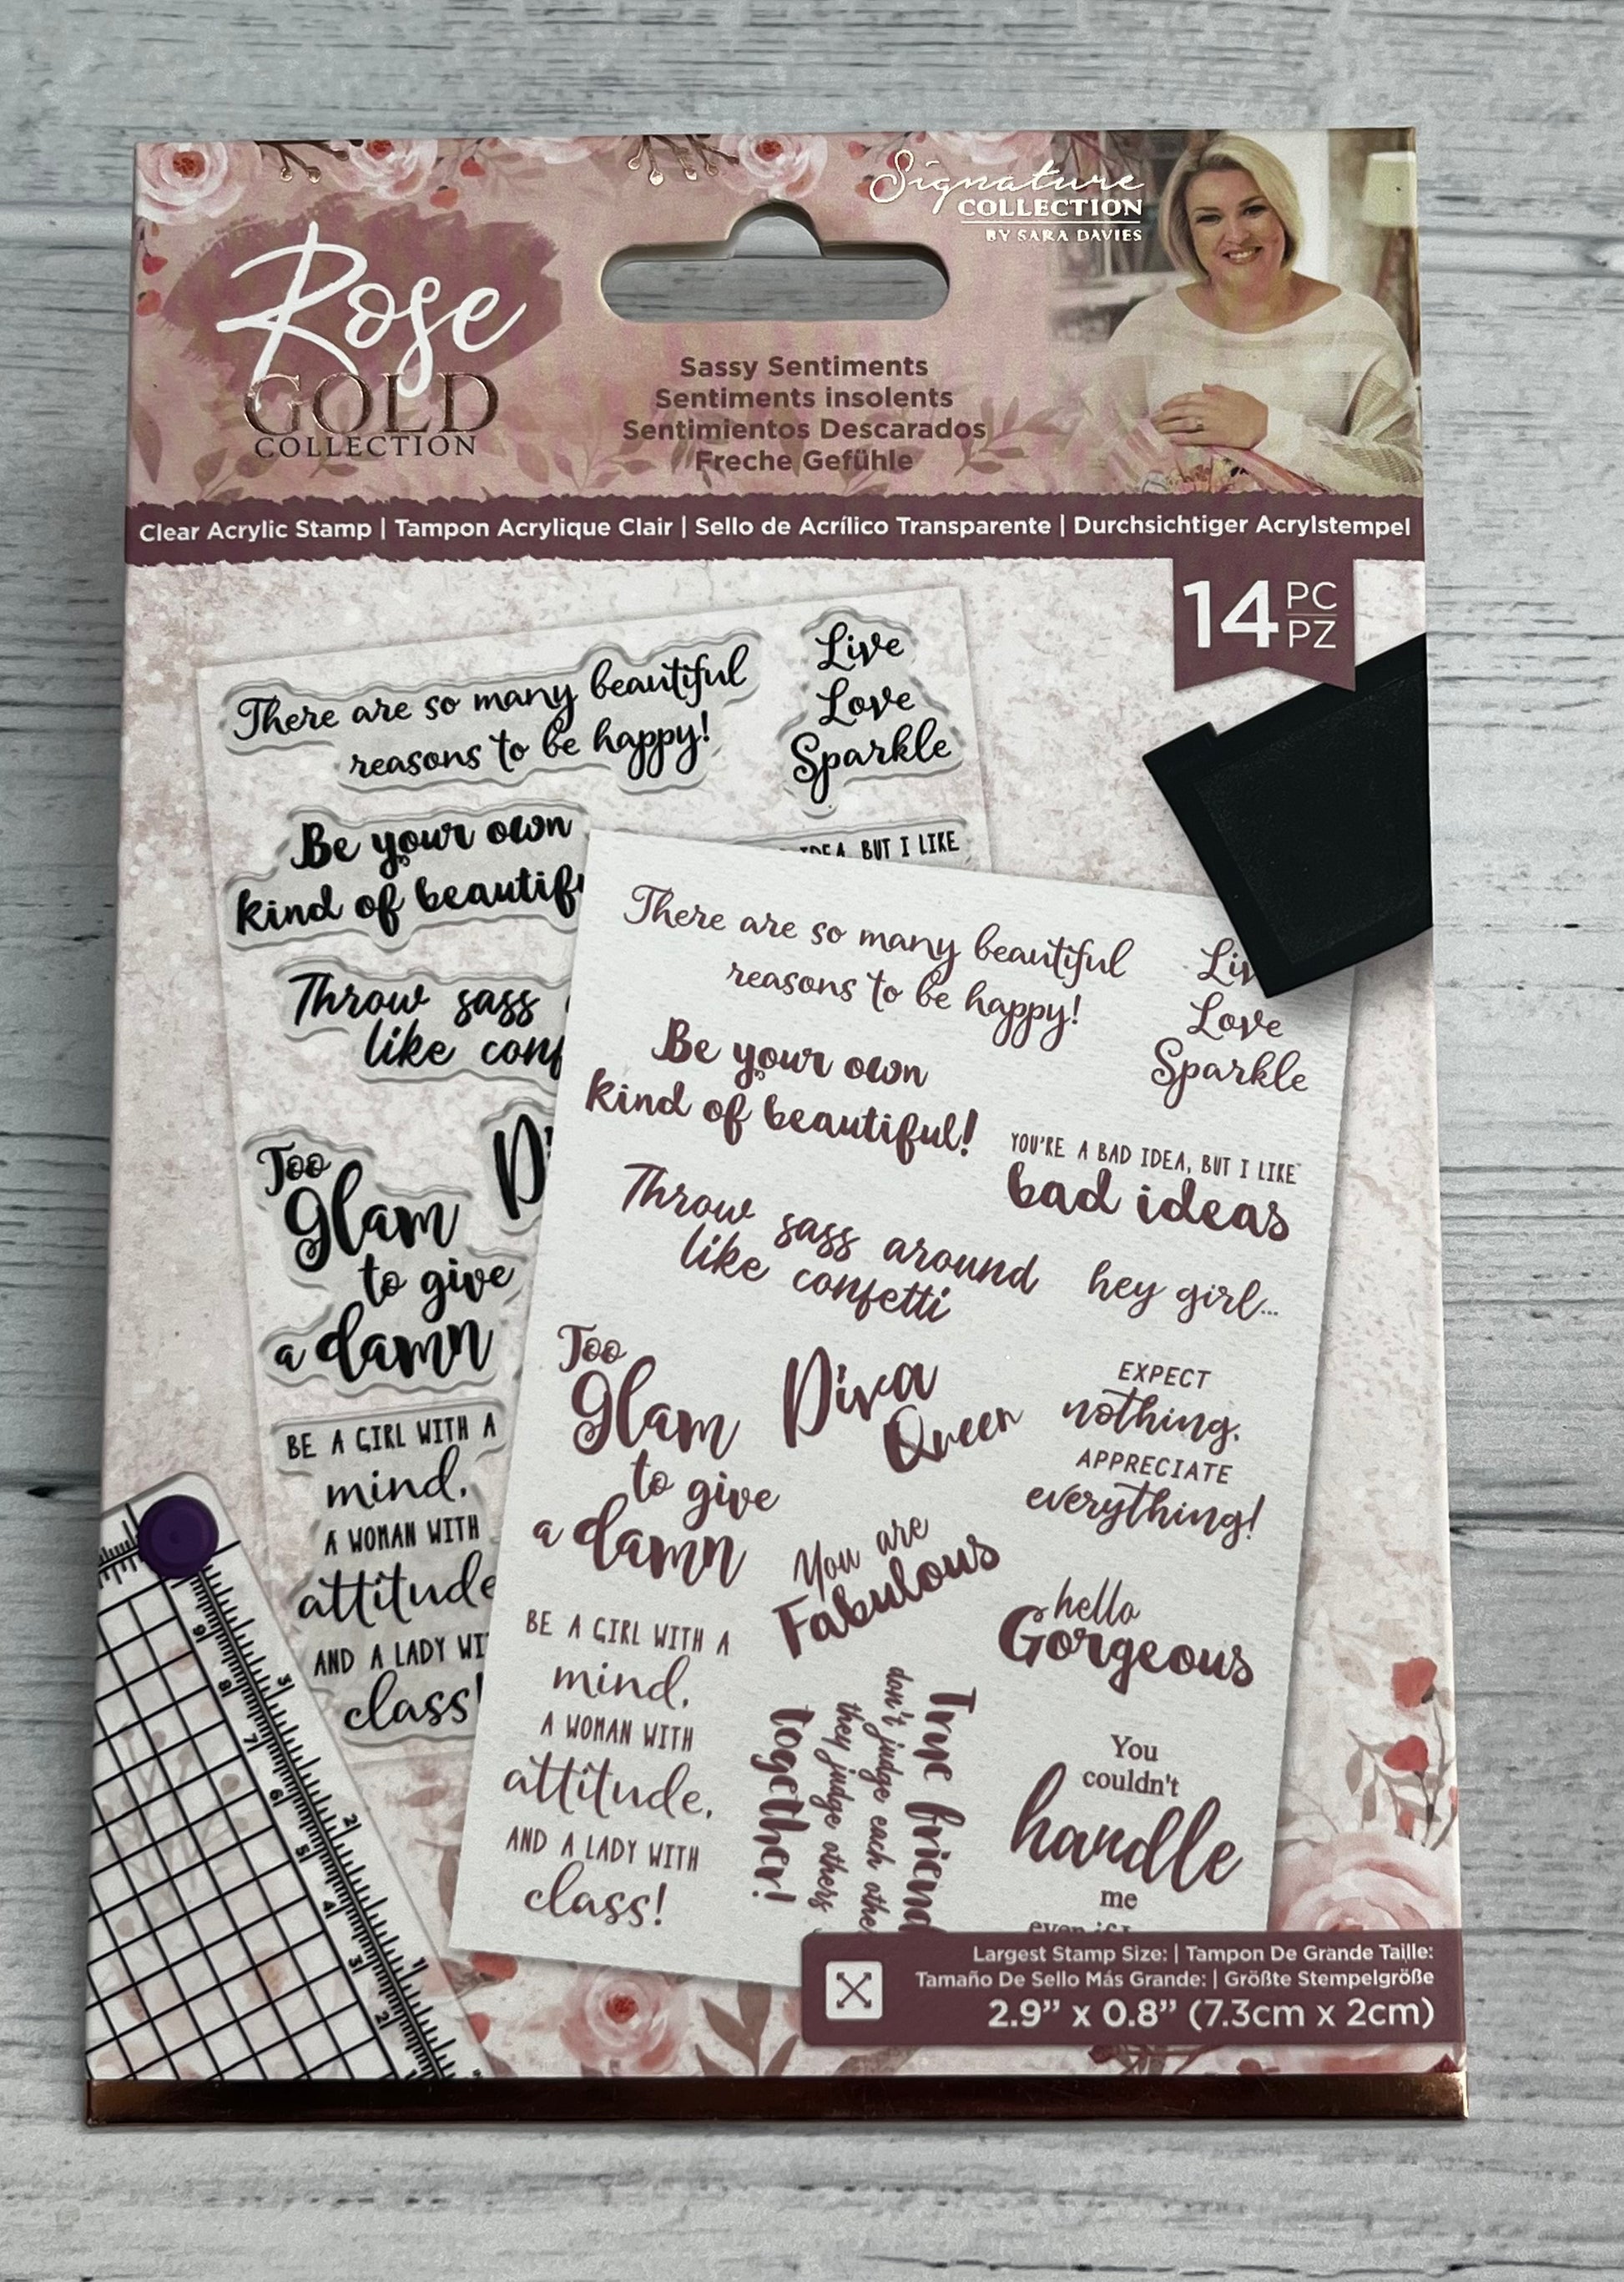 Signature
COLLECTION
BY SARA DAVIES
Rose
GOLD
COLLECTION
Sassy Sentiments
Sentiments insolents
Sentimientos Descarados
Freche Gefühle
Clear Acrylic Stamp | Tampon Acrylique Clair | Sello de Acrílico Transparente | Durchsichtiger Acrylstempel
14 PC
PZ
There are so many beautiful
reasons to be happy!
Live
Love
Sparkle
Be your own
kind of
BUT I LIKE
Throw sass
like
Too
Glam
to give
a damn
BE A GIRL WITH A
mind,
A WOMAN WITH
attitude
AND A LADY
class!
There are so many beautiful
reasons to be happy!
Love
Sparkle
Be your own
kind of beautiful!
YOU'RE A BAD IDEA, BUT I LIKE
bad ideas
Throw sass around
like confetti
hey girl...
Too
Glam
to give
a damn
Diva
Queen
EXPECT
nothing.
APPRECIATE
everything!
You are
Fabulous
hello
Gorgeous
BE A GIRL WITH A
mind,
A WOMAN WITH
attitude,
AND A LADY WITH
class!
True
don't judge each
they judge others
together!
You
couldn't
handle
me
even if
Largest Stamp Size: | Tampon De Grande Taille:
Tamaño De Sello Más Grande: | Größte Stempelgröße
2.9” x 0.8” (7.3cm x 2cm)
9
8
7
6
5
4
3
2
3
2
1